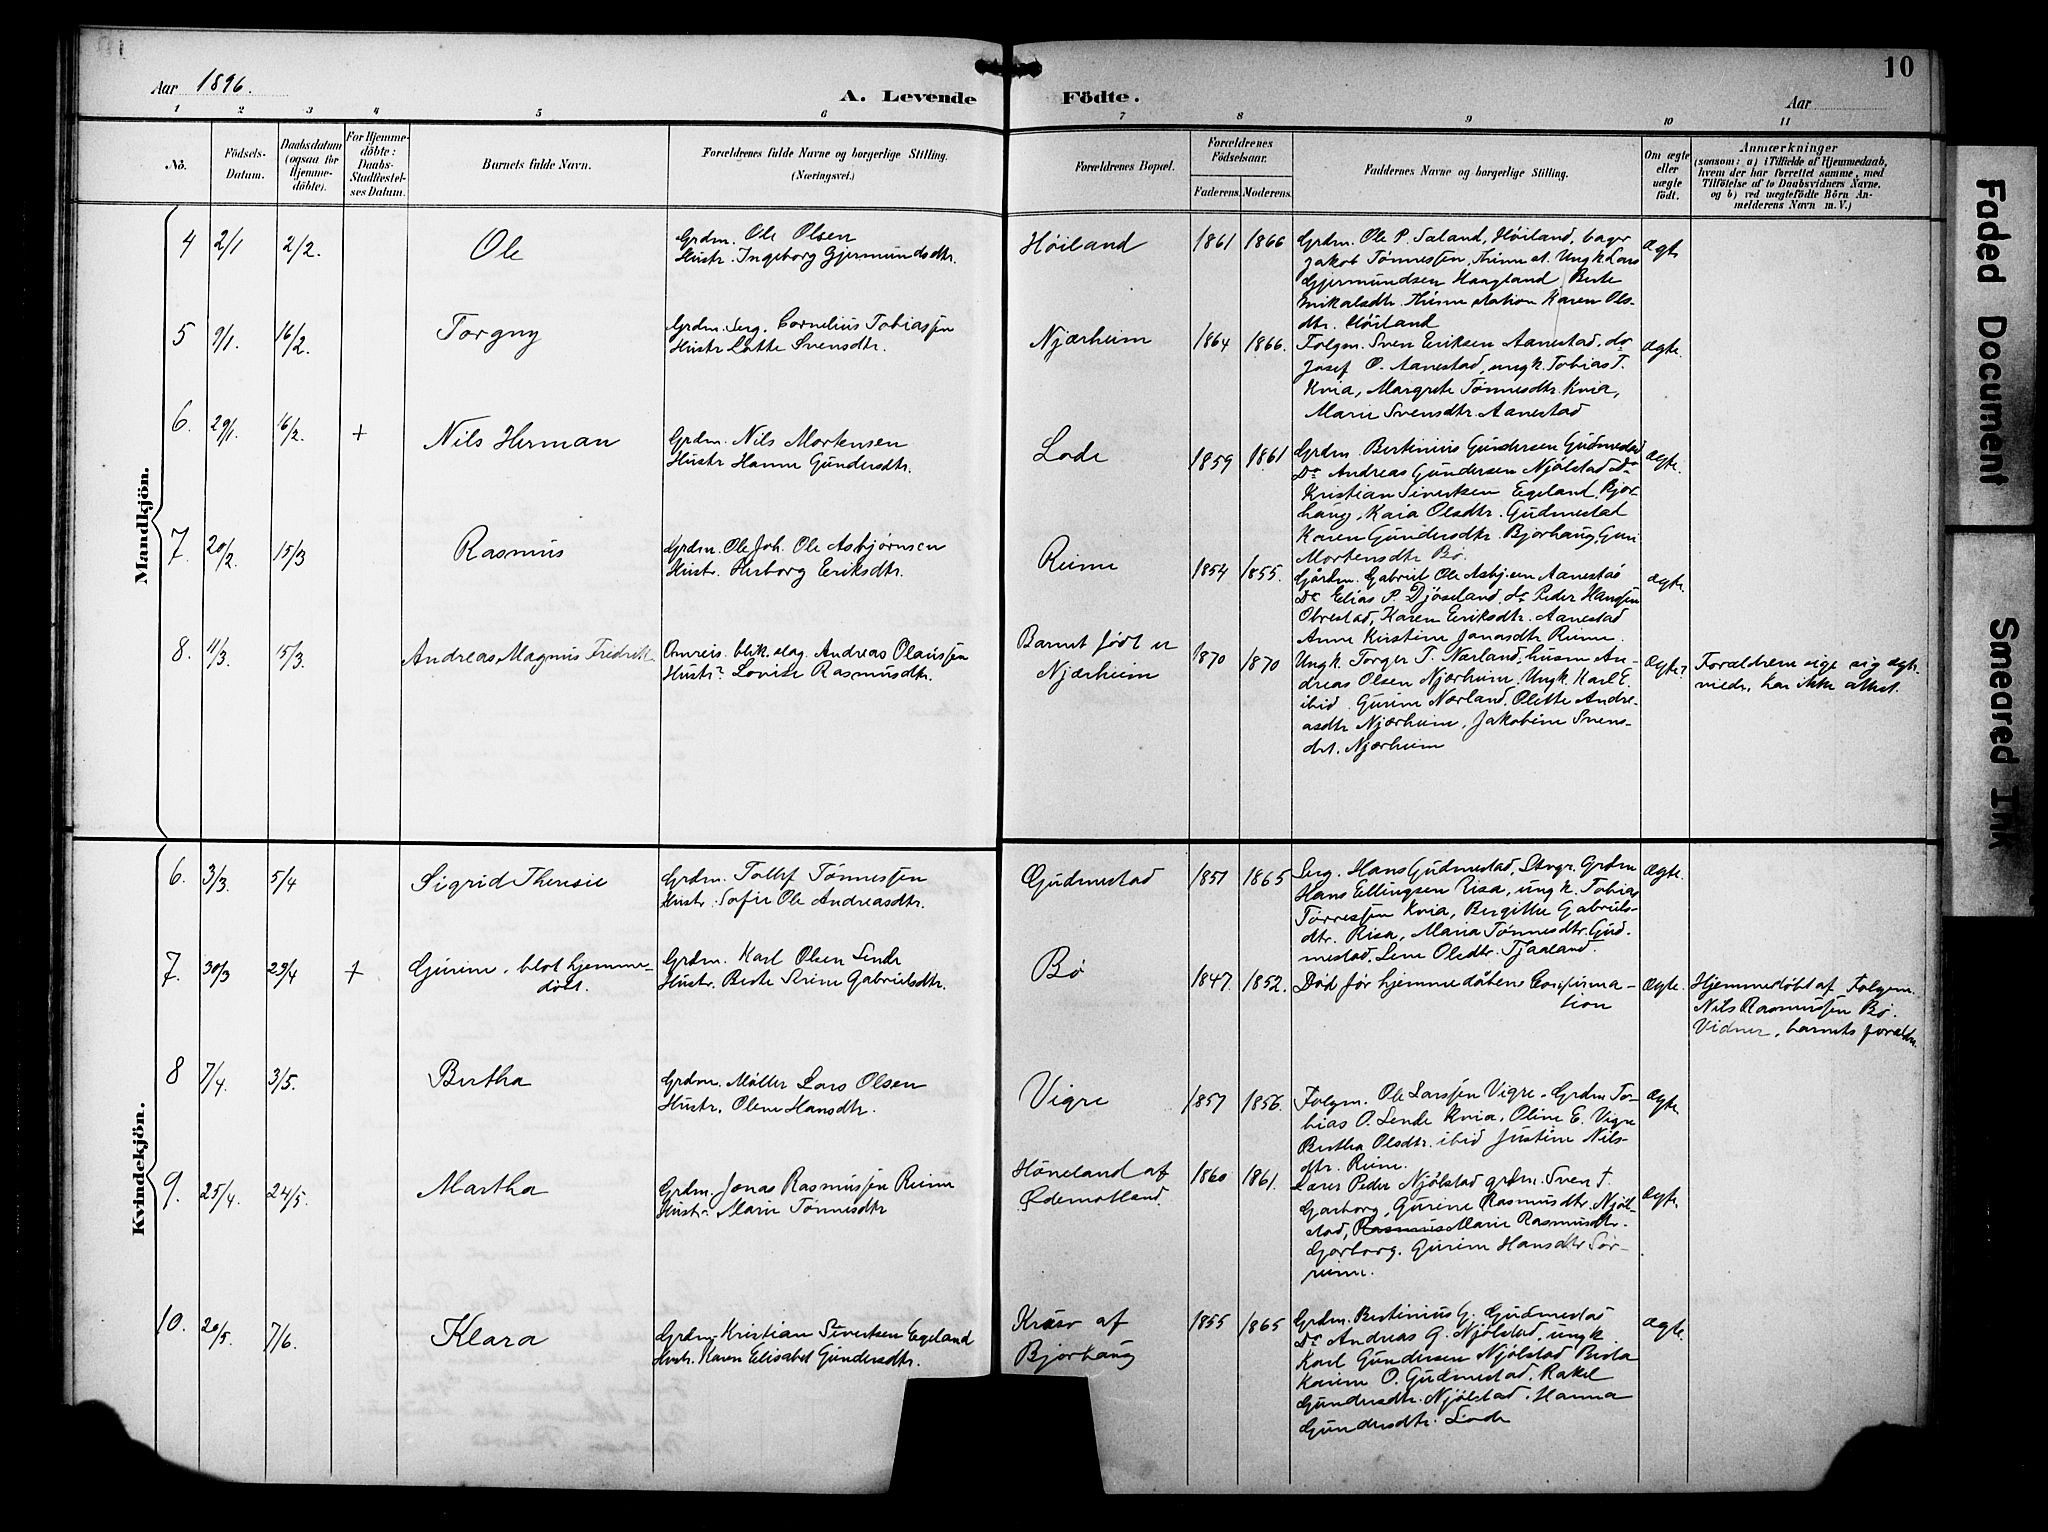 Aar 1896.
A. Levende Födte.
10
Aar
1 2 3 4 5 6 7 8 9 10 11
No.
Födsels-Datum.
Daabsdatum (ogsaa for Hjemme-döbte).
For Hjemme-döbte: Daabs-Stadfæstel-ses Datum.
Barnets fulde Navn.
Forældrenes fulde Navne og borgerlige Stilling. (Næringsvei.)
Forældrenes Bopæl.
Forældrenes Födselsaar.
Faderens. Moderens.
Faddernes Navne og borgerlige Stilling.
Om ægte eller uægte födt.
Anmærkninger
(saasom: a) i Tilfælde af Hjemmedaab, hvem der har forrettet samme, med Tilföielse af to Daabsvidners Navne, og b) ved uægtefödte Börn An-melderens Navn m. V.)
Mandkjön.
4 2/1 2/2. Ole
Grdm. Ole Olsen
Hustr. Ingeborg Gjermundsdtr.
Høiland 1861 1866
Grdm. Ole P. Saland, Høiland, bager
Jakob Tønnessen, Thime st. Ungk. Lars
Gjermundsen Haagland Berte
Mikalsdtr. Thime station Karen Ols-
dtr. Høiland
ægte
5 9/1. 16/2. Torgny
Grdm. Serg. Cornelius Tobiassen
Hustr Lotte Svensdtr.
Njærheim 1864 1866.
Folgm. Sven Eriksen Aanestad, do
Josef O. Aanestad, ungk. Tobias T.
Kvia, Margrete Tønnesdtr Kvia,
Marie Svensdtr. Aanestad
ægte.
6. 29/1. 16/2. + Nils Herman
Grdm. Nils Mortensen
Hustr Hanne Gundersdtr.
Lode 1859 1861
Grdm. Bertinius Gundersen Gudmestad
Do Andreas Gundersen Njølstad Do
Kristian Sivertsen Egeland, Bjor-
haug, Kaia Olsdtr. Gudmestad
Karen Gundersdtr. Bjorhaug, Guri
Mortensdtr Bø.
ægte.
7. 20/2. 15/3 Rasmus
Grdm. Ole Joh. Ole Asbjørnsen
Hustr. Herborg Eriksdtr.
Reime 1854 1855.
Gårdm. Gabriel Ole Asbj.sen Aanestad
Do Elias P. Djøseland do Peder Hanssen
Obrestad, Karen Eriksdtr. Aanestad
Anne Kirstine Jonasdtr Reime.
ægte.
8. 11/3. 15/3. Andreas Magnus Fredrik
Omreis. blik.slag. Andreas Olaussen
Hustr. Lovise Rasmusdtr.
Barnet født er
Njærheim
1870 1870
Ungk. Torger T. Nærland, husm An-
dreas Olsen Njærheim. Ungk. Karl E.
ibid. Gurine Nærland. Olette Andre-
asdtr Njærheim, Jakobine Svens-
dtr. Njærheim
Ægte?
Forældrene sige sig ægte-
viede, har ikke attest.
Kvindekjön.
6. 3/3. 5/4 Sigrid Theresie
Grdm. Tollef Tønnessen
Hustr. Sofie Ole Andreasdtr.
Gudmestad 1857 1865
Serg. Hans Gudmestad, Stvgr. Grdm
Hans Ellingsen Risa, ungk. Tobias
Tørressen Kvia, Birgitte Gabriels-
dtr. Risa, Maria Tønnesdtr. Gud-
mestad, Lene Olsdtr. Tjaaland.
Ægte.
7. 30/3 23/4 + Gurine, blot hjemme-
døbt.
Grdm. Karl Olsen Lende
Hustr. Berte Serine Gabrielsdtr.
Bø 1847. 1852.
Død før hjemmedåbens Confirma-
tion
Ægte.
Hjemmedøbt af Folgem.
Nils Rasmussen Bø.
Vidner, barnets forældre.
8 7/4. 3/5. Bertha
Grdm. Møller Lars Olsen
Hustr. Olene Hansdtr.
Vigre 1857 1856.
Folgm. Ole Larssen Vigre. Grdm. To-
bias O. Lende Kvia, Oline E. Vigre
Bertha Olsdtr. ibid Justine Nils-
dtr. Reime.
Ægte
9. 25/4. 24/5. Martha
Grdm. Jonas Rasmussen Reime
Hustr. Marie Tønnesdtr
Høneland af
Ødemotland.
1860 1861.
Lærer Peder Njølstad grdm. Sven T.
Garborg, Gurine Rasmusdtr. Njøl-
stad, Rasmus Marie Rasmusdtr.
Garborg. Gurine Hansdtr Sør-
reime.
Ægte.
10. 20/5. 7/6. Klara
Grdm. Kristian Sivertsen Egeland
Hustr. Karen Elisabet Gundersdtr.
Kræso af
Bjorhaug
1855 1865
Grdm. Bertinius G. Gudmestad
Do Andreas G. Njølstad, ungk.
Karl Gundersen Njølstad Berta
Karine O. Gudmestad, Rakel
Gundersdtr. Njølstad. Hanna
Gundersdtr. Lode
Ægte.
Faded Document
Smeared Ink